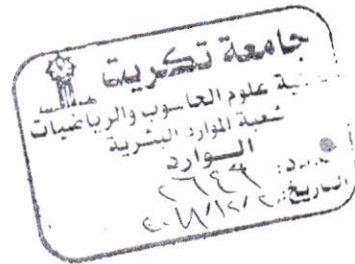 جامعة تكريت
كلية علوم الحاسوب والرياضيات
شعبة الموارد البشرية
الوارد
العدد:
التاريخ: